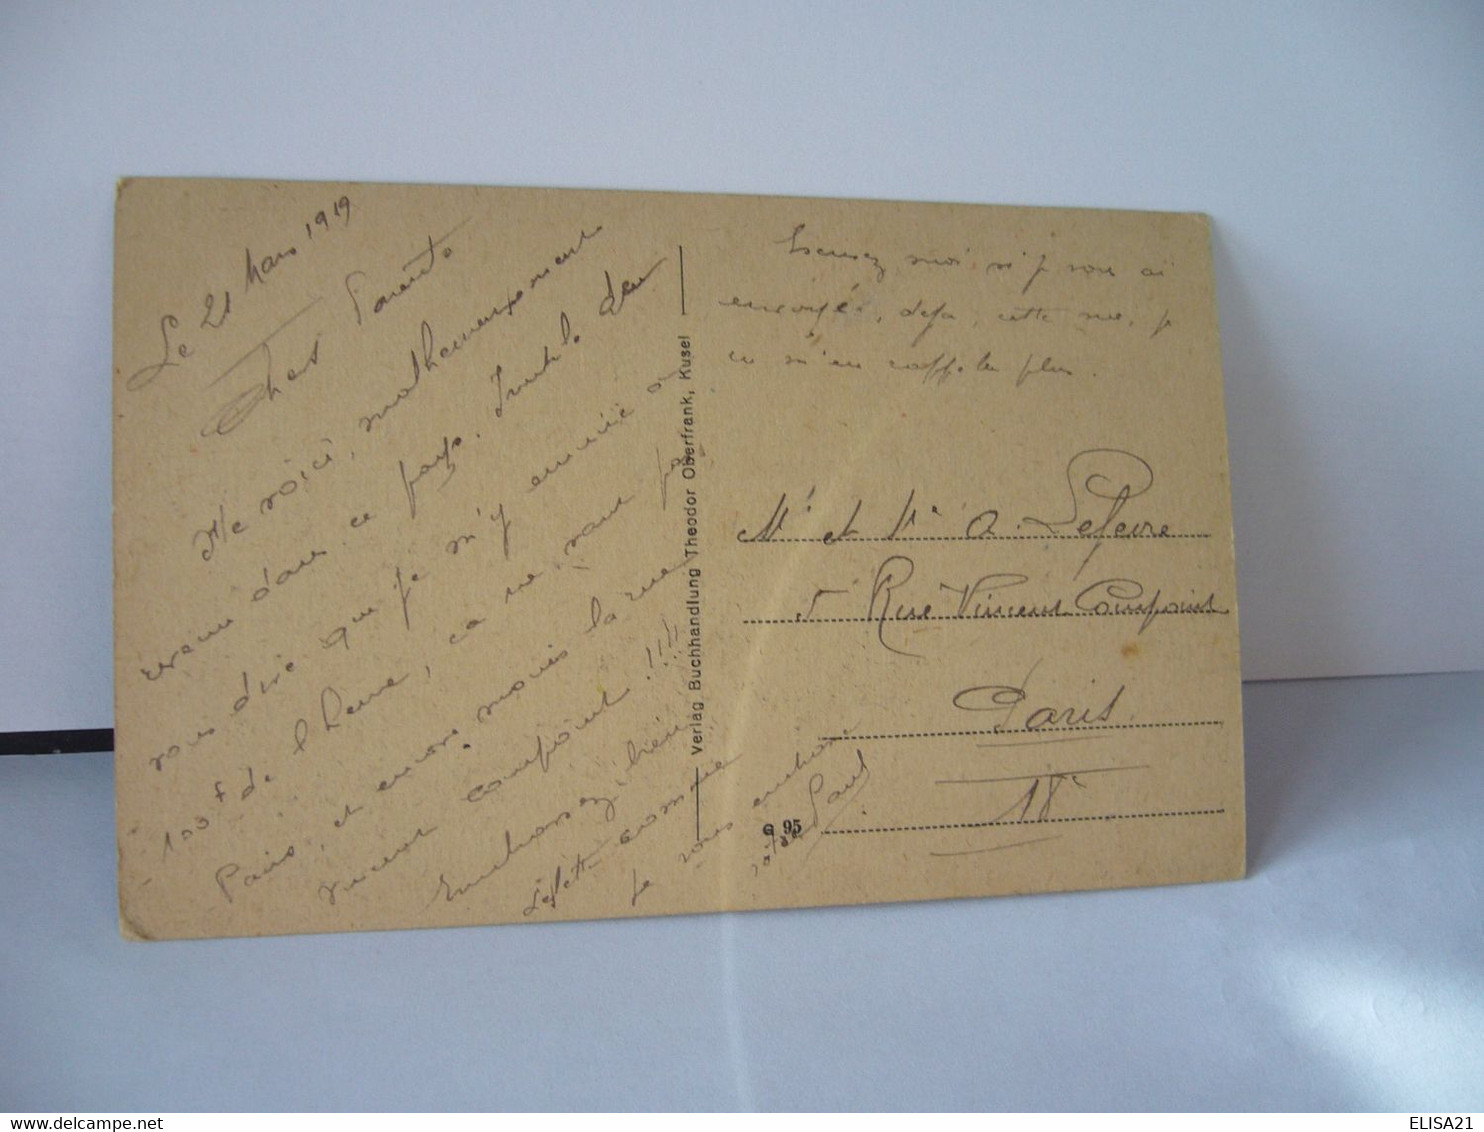 Le 21 Mars 1919
Chers Parents
Me voici, malheureusement
revenu dans ce pays. Inutile de
vous dire que je m'y ennuie à
100 f de l'heure, ça ne vaut pas
Paris, et encore moins la rue
Vincent Compoint !!!!
Embrassez bien
comme
Je vous embrasse
Paul
Excusez moi si je vous ai
envoyée, déja, cette vue, je
ne m'en rappelle plus.
Mr et Me A. Lefevre
5 Rue Vincent Compoint
Paris
18e
Verlag Buchhandlung Theodor Oberfrank, Kusel
G 95
delcampe.net
ELISA21